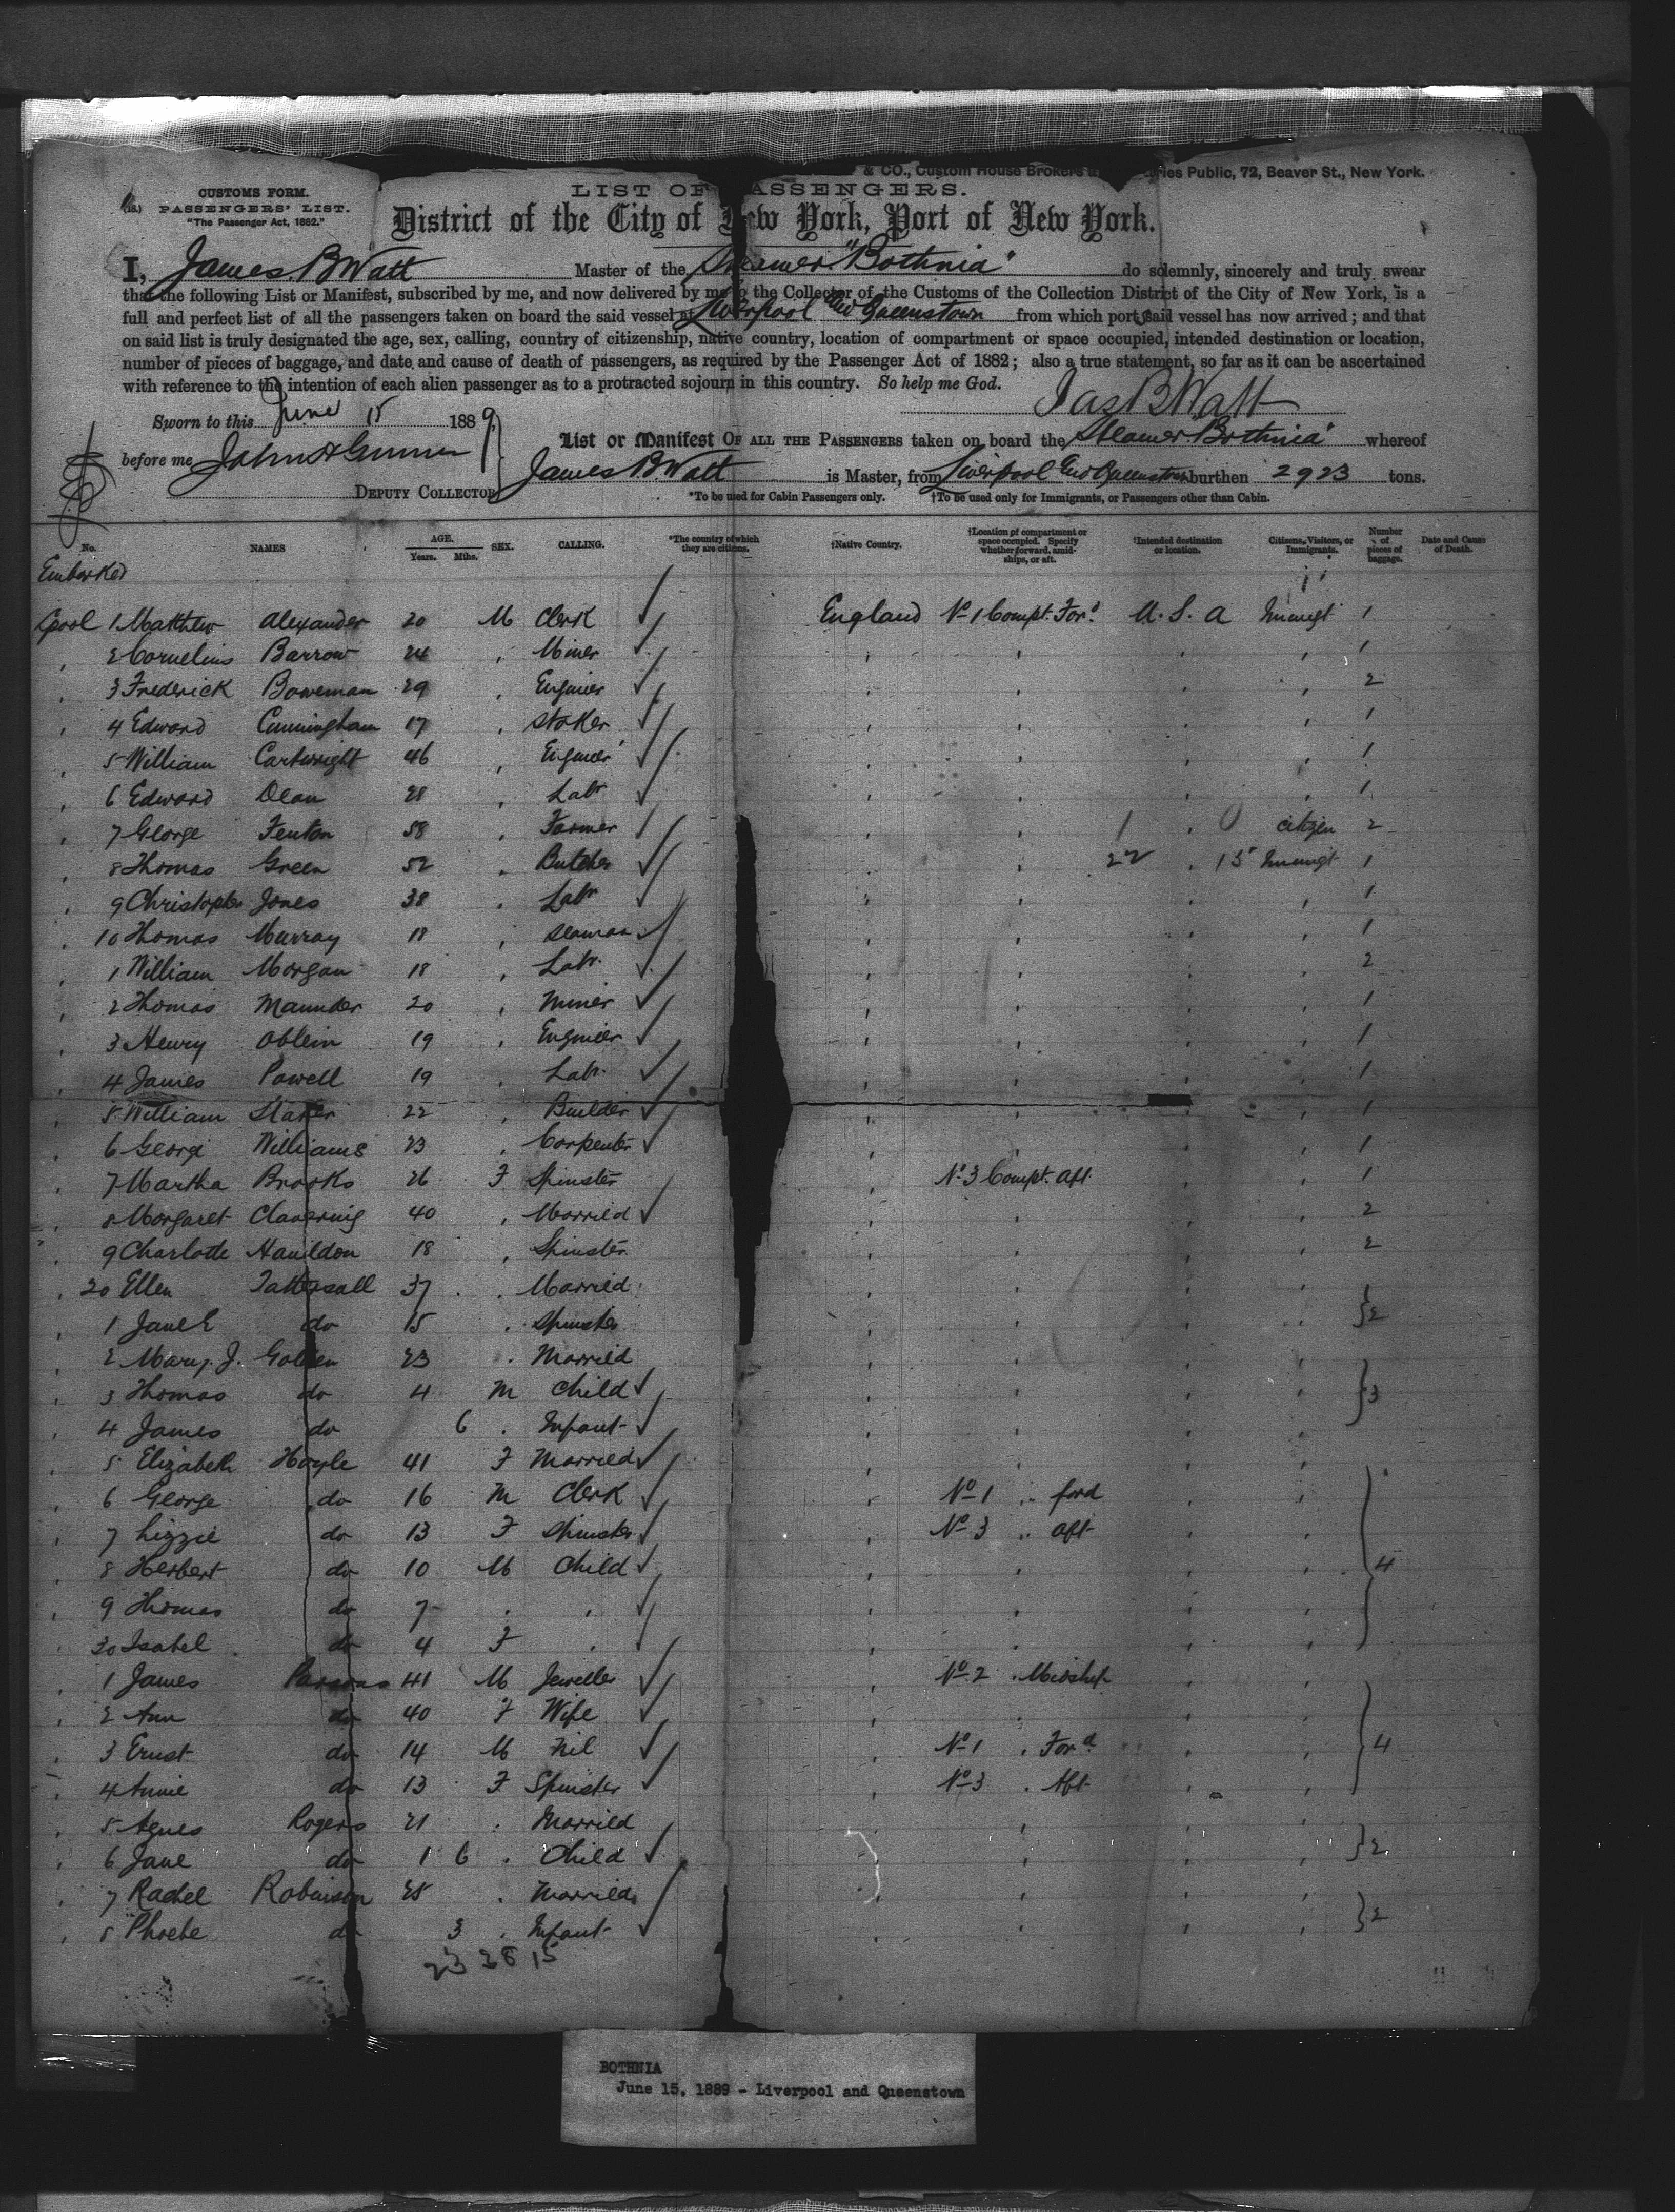 & CO., Custom House Brokers ries Public, 72, Beaver St., New York.
CUSTOMS FORM.
PASSENGERS' LIST.
"The Passenger Act, 1882."
LIST OF PASSENGERS.
District of the City of New York, Port of New York.
I, James B Watt Master of the Steamer "Bothnia" do solemnly, sincerely and truly swear
that the following List or Manifest, subscribed by me, and now delivered by me to the Collector of the Customs of the Collection District of the City of New York, is a
full and perfect list of all the passengers taken on board the said vessel at Liverpool and Queenstown from which port said vessel has now arrived; and that
on said list is truly designated the age, sex, calling, country of citizenship, native country, location of compartment or space occupied, intended destination or location,
number of pieces of baggage, and date and cause of death of passengers, as required by the Passenger Act of 1882; also a true statement, so far as it can be ascertained
with reference to the intention of each alien passenger as to a protracted sojourn in this country. So help me God.
Jas B Watt
Sworn to this June 15 1889
before me John
DEPUTY COLLECTOR
List or Manifest OF ALL THE PASSENGERS taken on board the Steamer Bothnia whereof
James B. Watt is Master, from Liverpool and Queenstown burthen 2923 tons.
*To be used for Cabin Passengers only. †To be used only for Immigrants, or Passengers other than Cabin.
No. NAMES AGE. Years. Mths. SEX. CALLING. *The country of which they are citizens. †Native Country. †Location of compartment or space occupied. Specify whether forward, amidships, or aft. †Intended destination or location. Citizens, Visitors, or Immigrants. Number of pieces of baggage. Date and Cause of Death.
Embarked
Lpool 1 Matthew Alexander 20 M Clerk England No 1 Compt. Ford U.S.A Immigt 1
2 Cornelius Barrow 24 Miner 1
3 Frederick Boweman 29 Enginer 2
4 Edward Cunningham 17 Stoker 1
5 William Cartwright 46 Enginer 1
6 Edward Dean 28 Labr 1
7 George Fenton 58 Farmer 1 0 citizen 2
8 Thomas Green 52 Butcher 22 15 Immigt 1
9 Christopher Jones 38 Labr 1
10 Thomas Murray 18 Seaman 1
1 William Morgan 18 Labr. 2
2 Thomas Maunder 20 Miner 1
3 Henry Oblein 19 Enginer 1
4 James Powell 19 Labr. 1
5 William 22 Builder 1
6 George Williams 23 Carpenter 1
7 Martha Brooks 26 F Spinster No 3 Compt. Aft 1
8 Margaret Clavering 40 Married 2
9 Charlotte Hauldon 18 Spinster 2
20 Ellen Tattersall 37 Married
1 Jane E do 15 Spinster } 2
2 Mary. J. Golden 23 Married
3 Thomas do 4 M Child } 3
4 James do 6 Infant
5 Elizabeth Hoyle 41 F Married
6 George do 16 M Clerk No 1 ford
7 Lizzie do 13 F Spinster No 3 aft
8 Herbert do 10 M Child } 4
9 Thomas do 7
30 Isabel do 4 F
1 James Parsons 41 M Jeweller No 2 Midship
2 Ann do 40 F Wife
3 Ernst do 14 M Nil No 1 Ford } 4
4 Annie do 13 F Spinster No 3 Aft
5 Agnes Rogers 21 Married
6 Jane do 1 6 Child } 2
7 Rachel Robinson 25 Married
8 Phoebe do 3 Infant } 2
23 38 15
BOTHNIA
June 15, 1889 - Liverpool and Queenstown